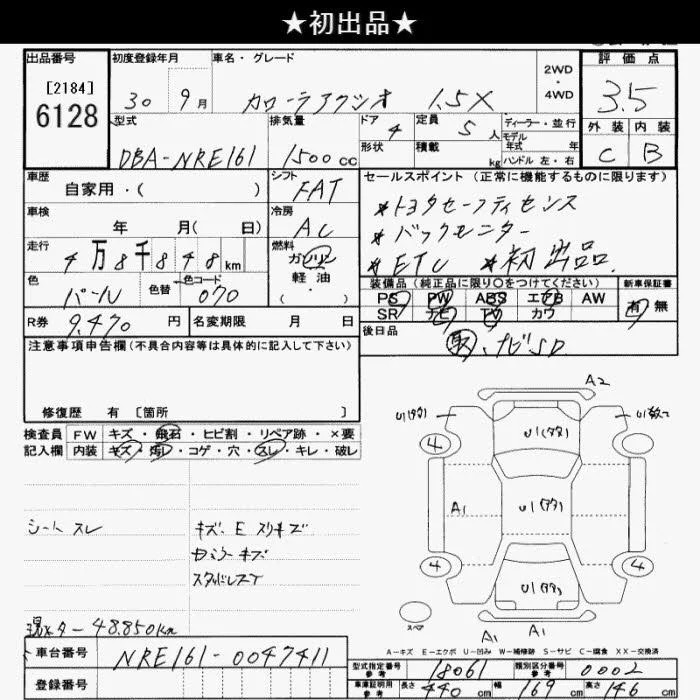 ★初出品★
出品番号 初度登録年月 車名・グレード 2WD ・ 4WD 評価点
[2184]
6128
30 9月 カローラアクシオ 1.5X 3.5
型式 排気量 ドア 4 定員 5人 ディーラー・並行 外装 内装
DBA-NRE161 1500cc 形状 積載 kg モデル年式 年 ハンドル 左・右 C B
車歴 シフト セールスポイント(正常に機能するものに限ります)
自家用・( ) FAT
*トヨタセーフティセンス
車検 冷房
年 月(日) AC
*バックモニター
走行 燃料
4万8千848km ガソリン 軽油 ・
*ETC *初出品
色 色替 色コード
パール 070
装備品(純正品に限り〇をつけてください) 新車保証書
PS PW ABS エアB AW 有・無
SR ナビ TV カワ
R券 9,470円 名変期限 月 日
後日品
取 ナビSD
注意事項申告欄(不具合内容等は具体的に記入して下さい)
修復歴 有[箇所 ]
検査員 FW キズ・飛石・ヒビ割・リペア跡・×要
記入欄 内装 キズ・汚レ・コゲ・穴・スレ・キレ・破レ
A2
U1
4
U1
A1 U1
4 4
U1
スペア
A1 A1
シート スレ キズ、E スリキズ
キズ
スタッドレスT
48,850km
A-キズ E-エクボ U-凹み W-補修跡 S-サビ C-腐食 XX-交換済
車台番号 NRE161-0047411
型式指定番号 参考 18061 類別区分番号 参考 0002
登録番号
車庫証明用 参考 長さ 440cm 幅 169cm 高さ 146cm